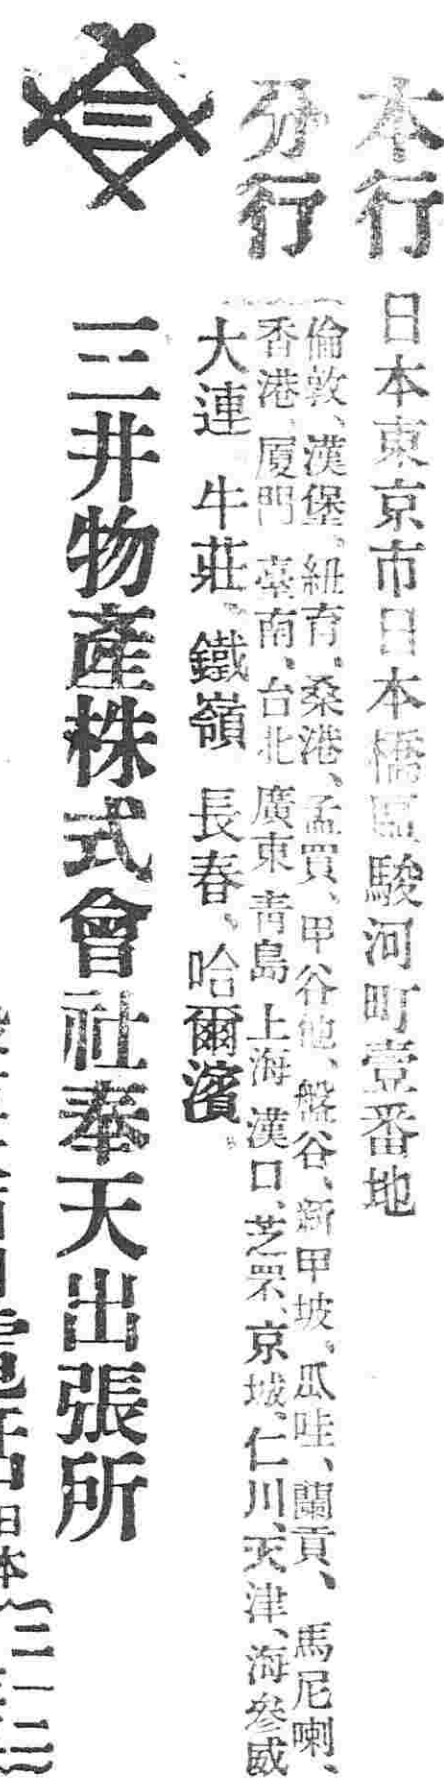 本行
日本東京市日本橋區駿河町壹番地
分行
倫敦、漢堡、紐育、桑港、孟買、甲谷他、盤谷、新甲坡、瓜哇、蘭貢、馬尼喇、
香港、廈門 臺南、台北 廣東 青島 上海 漢口、芝罘、京城、仁川、天津、海參威
大連 牛莊、鐵嶺 長春、哈爾濱。
三
三井物產株式會社奉天出張所
電話 日本